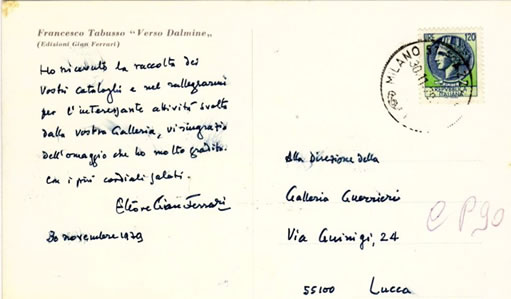 Francesco Tabusso "Verso Dalmine„
(Edizioni Gian Ferrari)
Ho ricevuto la raccolta dei
Vostri cataloghi e nel rallegrarmi
per l'interessante attività svolta
dalla vostra Galleria, vi ringrazio
dell'omaggio che ho molto gradito.
Con i più cordiali saluti.
Ettore Gian Ferrari
30 novembre 1979
LIRE 120
MILANO
30.11
Alla Direzione della
Galleria Guerrieri
Via Guinigi, 24
55100 Lucca
CP90